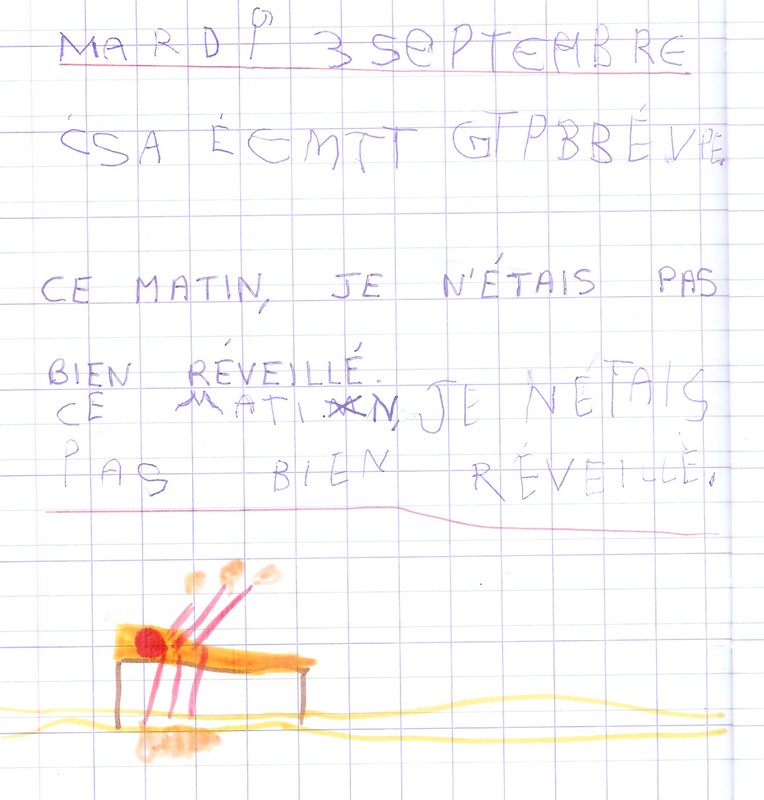 MARDI 3 SEPTEMBRE
ĆSA ÉEMTT GTPBBÉVPE
CE MATIN, JE N'ÉTAIS PAS
BIEN RÉVEILLÉ.
CE MATIN, JE NÉTAIS
PAS BIEN RÉVEILLÈ.